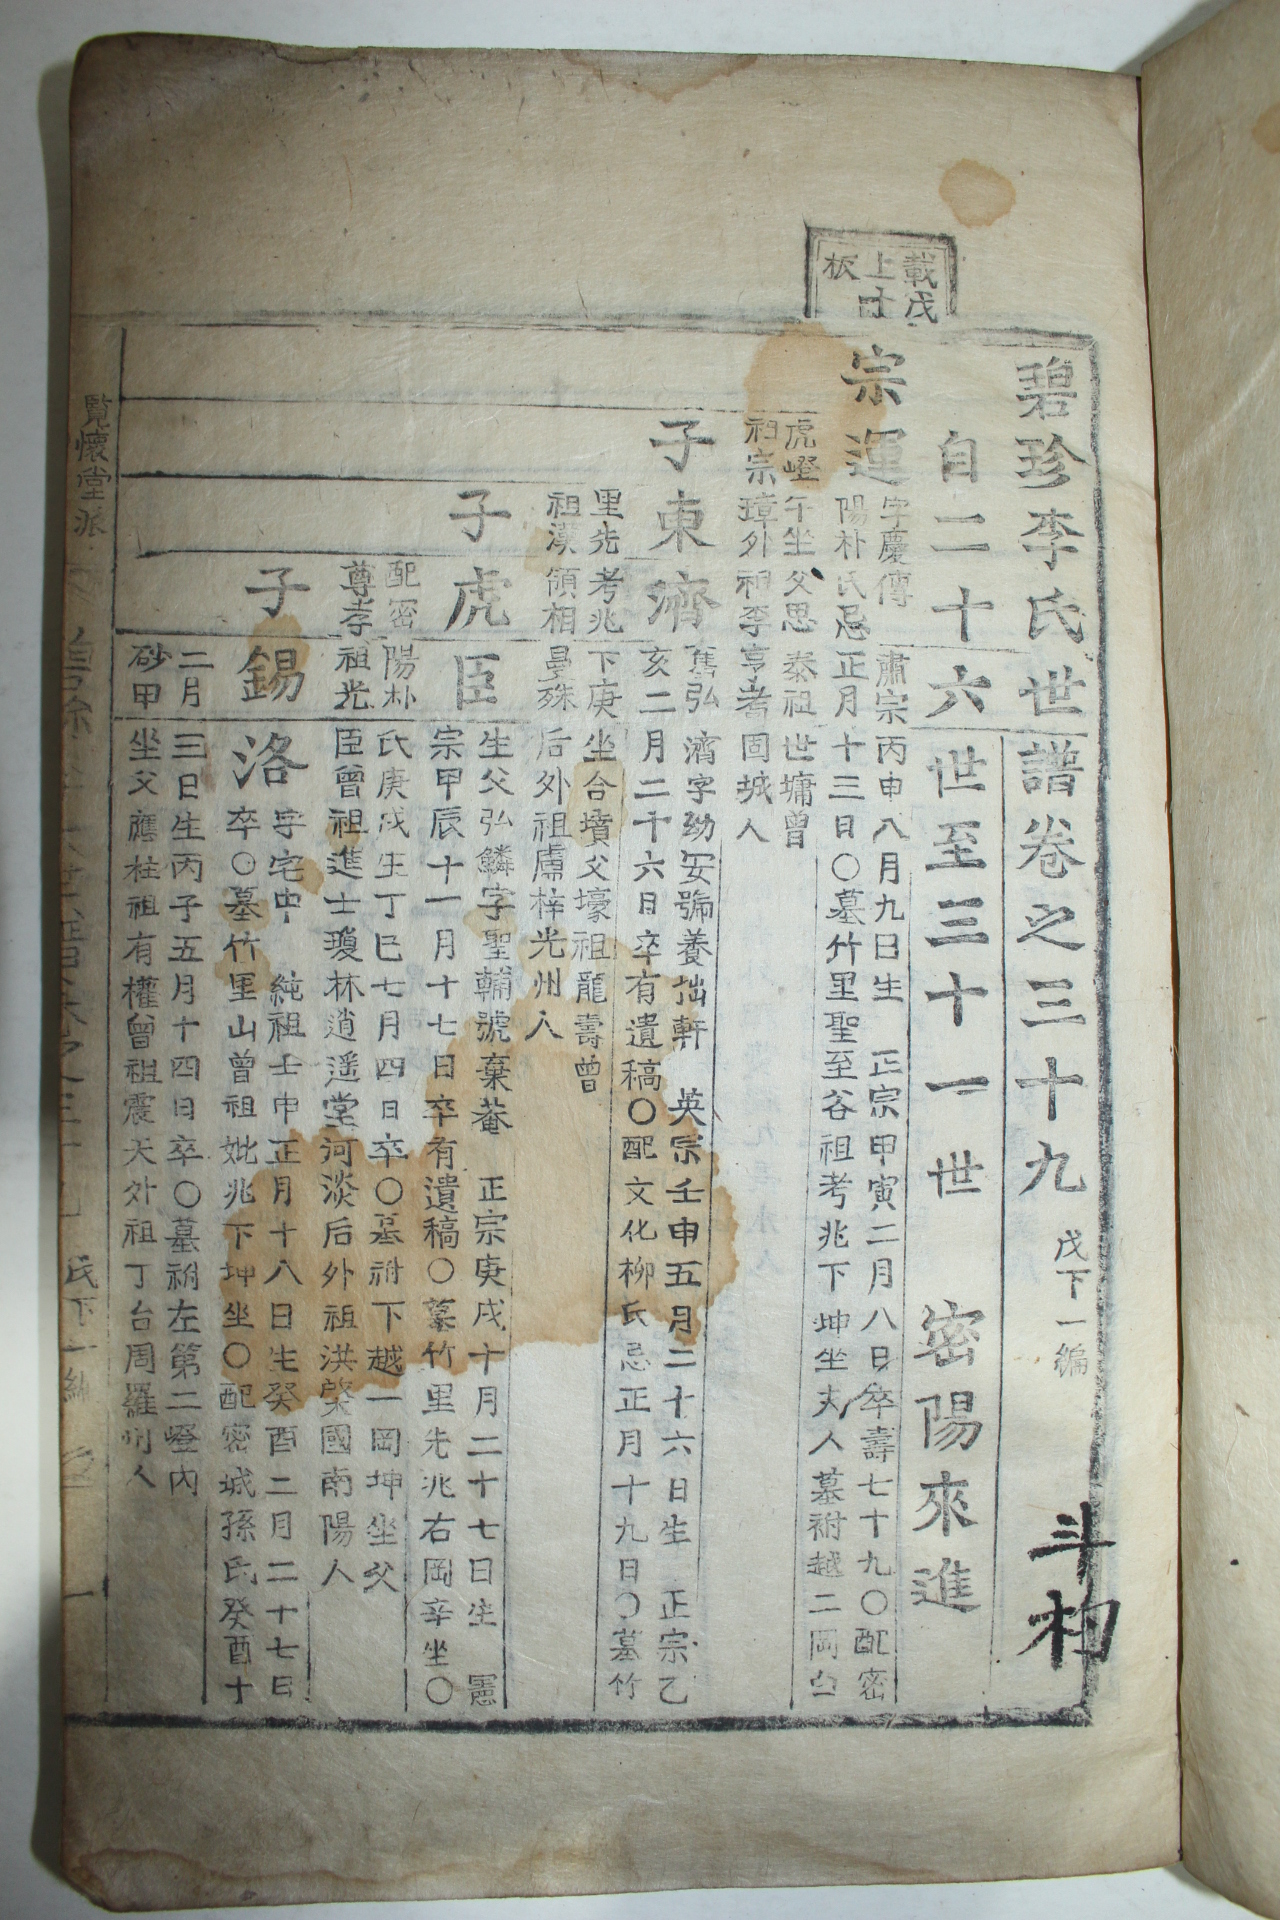 載戊
上
板
碧珍李氏世譜卷之三十九 戊下一編
斗杓
自二十六世至三十一世 密陽來進
宗運
字慶傳 肅宗丙申八月九日生 正宗甲寅二月八日卒壽七十九〇配密
陽朴氏忌正月十三日〇墓竹里聖至谷祖考兆下坤坐夫人墓祔越二岡白
虎嶝午坐父思泰祖世墉曾
祖宗璋外祖李亨耇固城人
子東濟
舊弘濟字幼安號養拙軒 英宗壬申五月二十六日生 正宗乙
亥二月二十六日卒有遺稿〇配文化柳氏忌正月十九日〇墓竹
里先考兆下庚坐合墳父壕祖龍壽曾
祖漢領相曼殊后外祖盧梓光州人
子虎臣
生父弘鱗字聖輔號棄菴 正宗庚戌十月二十七日生 憲
宗甲辰十一月十七日卒有遺稿〇墓竹里先兆右岡辛坐〇
配密陽朴氏庚戌生丁巳七月四日卒〇墓祔下越一岡坤坐父
尊孝祖光臣曾祖進士瓊林逍遥堂河淡后外祖洪啓國南陽人
子錫洛
字宅中 純祖壬申正月十八日生癸酉二月二十七日
卒〇墓竹里山曾祖妣兆下坤坐〇配密城孫氏癸酉十
二月三日生丙子五月十四日卒〇墓祔左第二嶝內
砂甲坐父應柱祖有權曾祖震天外祖丁台周羅州人
覧懷堂派
氏下一編
一